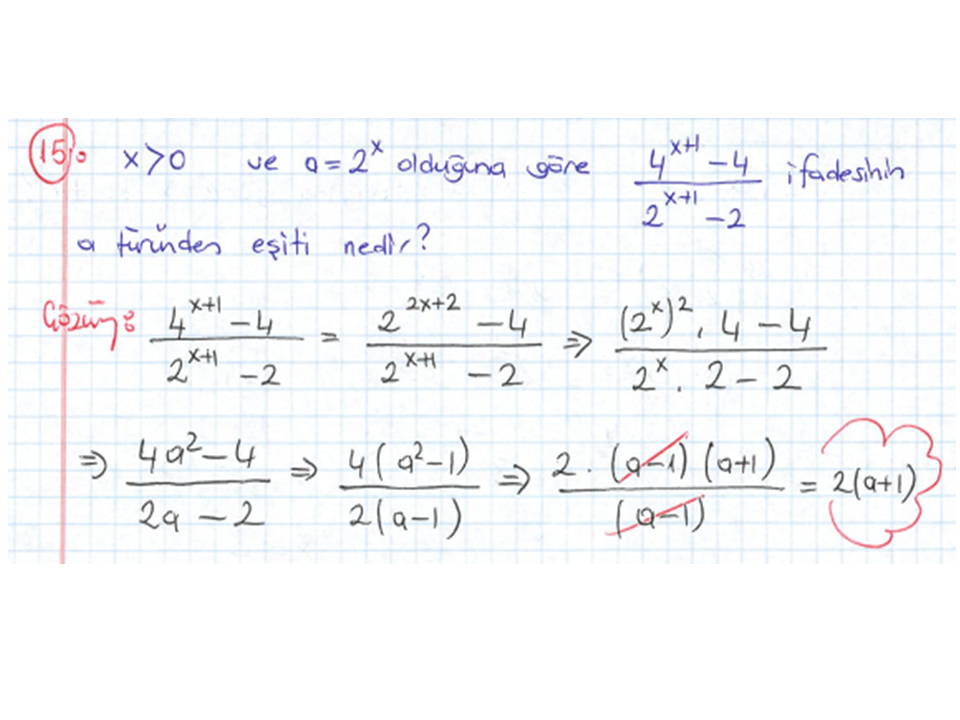 15. x>0 ve a = 2^x olduğuna göre (4^(x+1) - 4)/(2^(x+1) - 2) ifadesinin
a türünden eşiti nedir?
Çözüm: (4^(x+1) - 4)/(2^(x+1) - 2) = (2^(2x+2) - 4)/(2^(x+1) - 2) ⇒ ((2^x)^2 . 4 - 4)/(2^x . 2 - 2)
⇒ (4a^2 - 4)/(2a - 2) ⇒ 4(a^2-1)/2(a-1) ⇒ 2 . (a-1)(a+1)/(a-1) = 2(a+1)